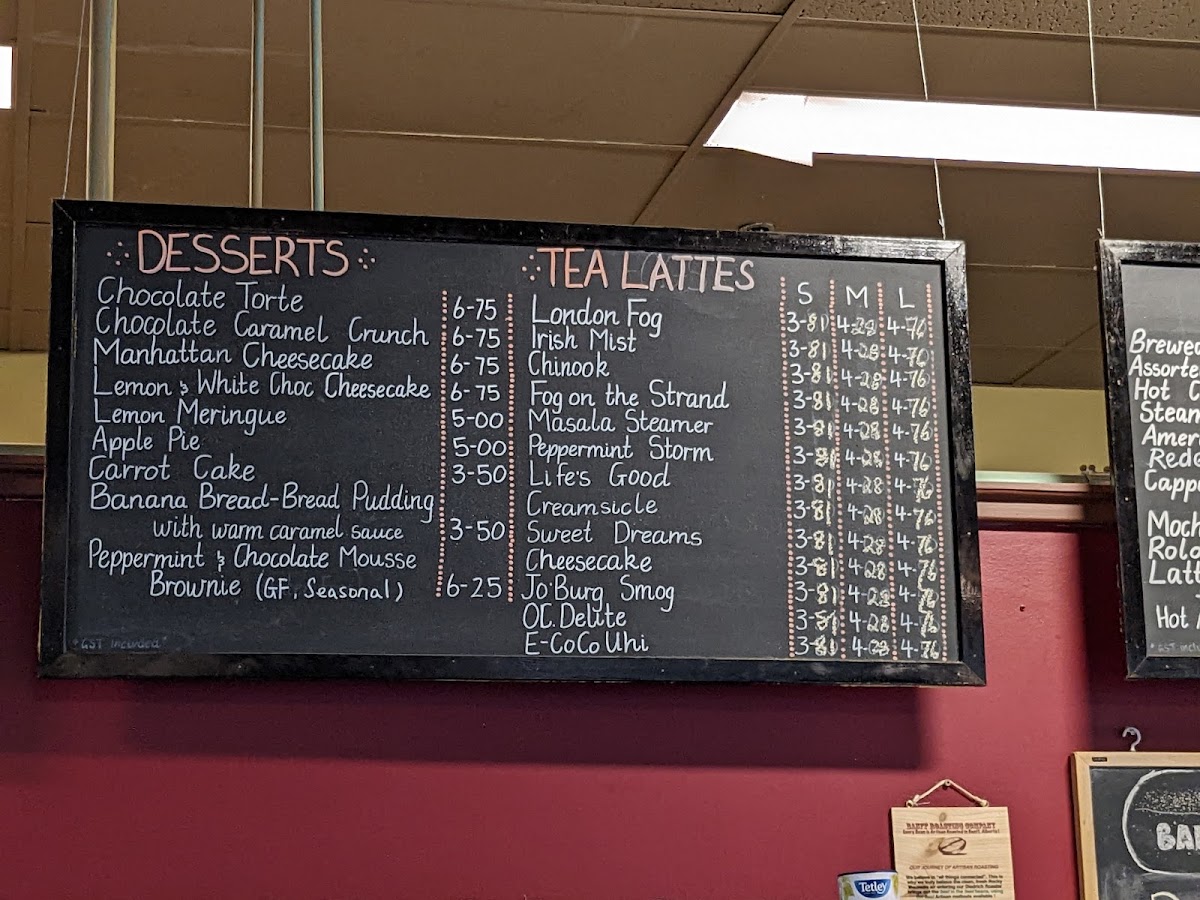 DESSERTS
Chocolate Torte 6-75
Chocolate Caramel Crunch 6-75
Manhattan Cheesecake 6-75
Lemon & White Choc Cheesecake 6-75
Lemon Meringue 5-00
Apple Pie 5-00
Carrot Cake 3-50
Banana Bread-Bread Pudding
with warm caramel sauce 3-50
Peppermint & Chocolate Mousse
Brownie (GF, Seasonal) 6-25
*GST included*
TEA LATTES S M L
London Fog 3-81 4-28 4-76
Irish Mist 3-81 4-28 4-76
Chinook 3-81 4-28 4-76
Fog on the Strand 3-81 4-28 4-76
Masala Steamer 3-81 4-28 4-76
Peppermint Storm 3-81 4-28 4-76
Life's Good 3-81 4-28 4-76
Creamsicle 3-81 4-28 4-76
Sweet Dreams 3-81 4-28 4-76
Cheesecake 3-81 4-28 4-76
Jo'Burg Smog 3-81 4-28 4-76
OC. Delite 3-81 4-28 4-76
E-CoCo Uhi 3-81 4-28 4-76
Brewed
Assorte
Hot C
Steam
Ameri
Rede
Cappu
Moch
Rola
Latt
Hot
BANFF ROASTING COMPANY
OUR JOURNEY OF ARTISAN ROASTING
Tetley
BA